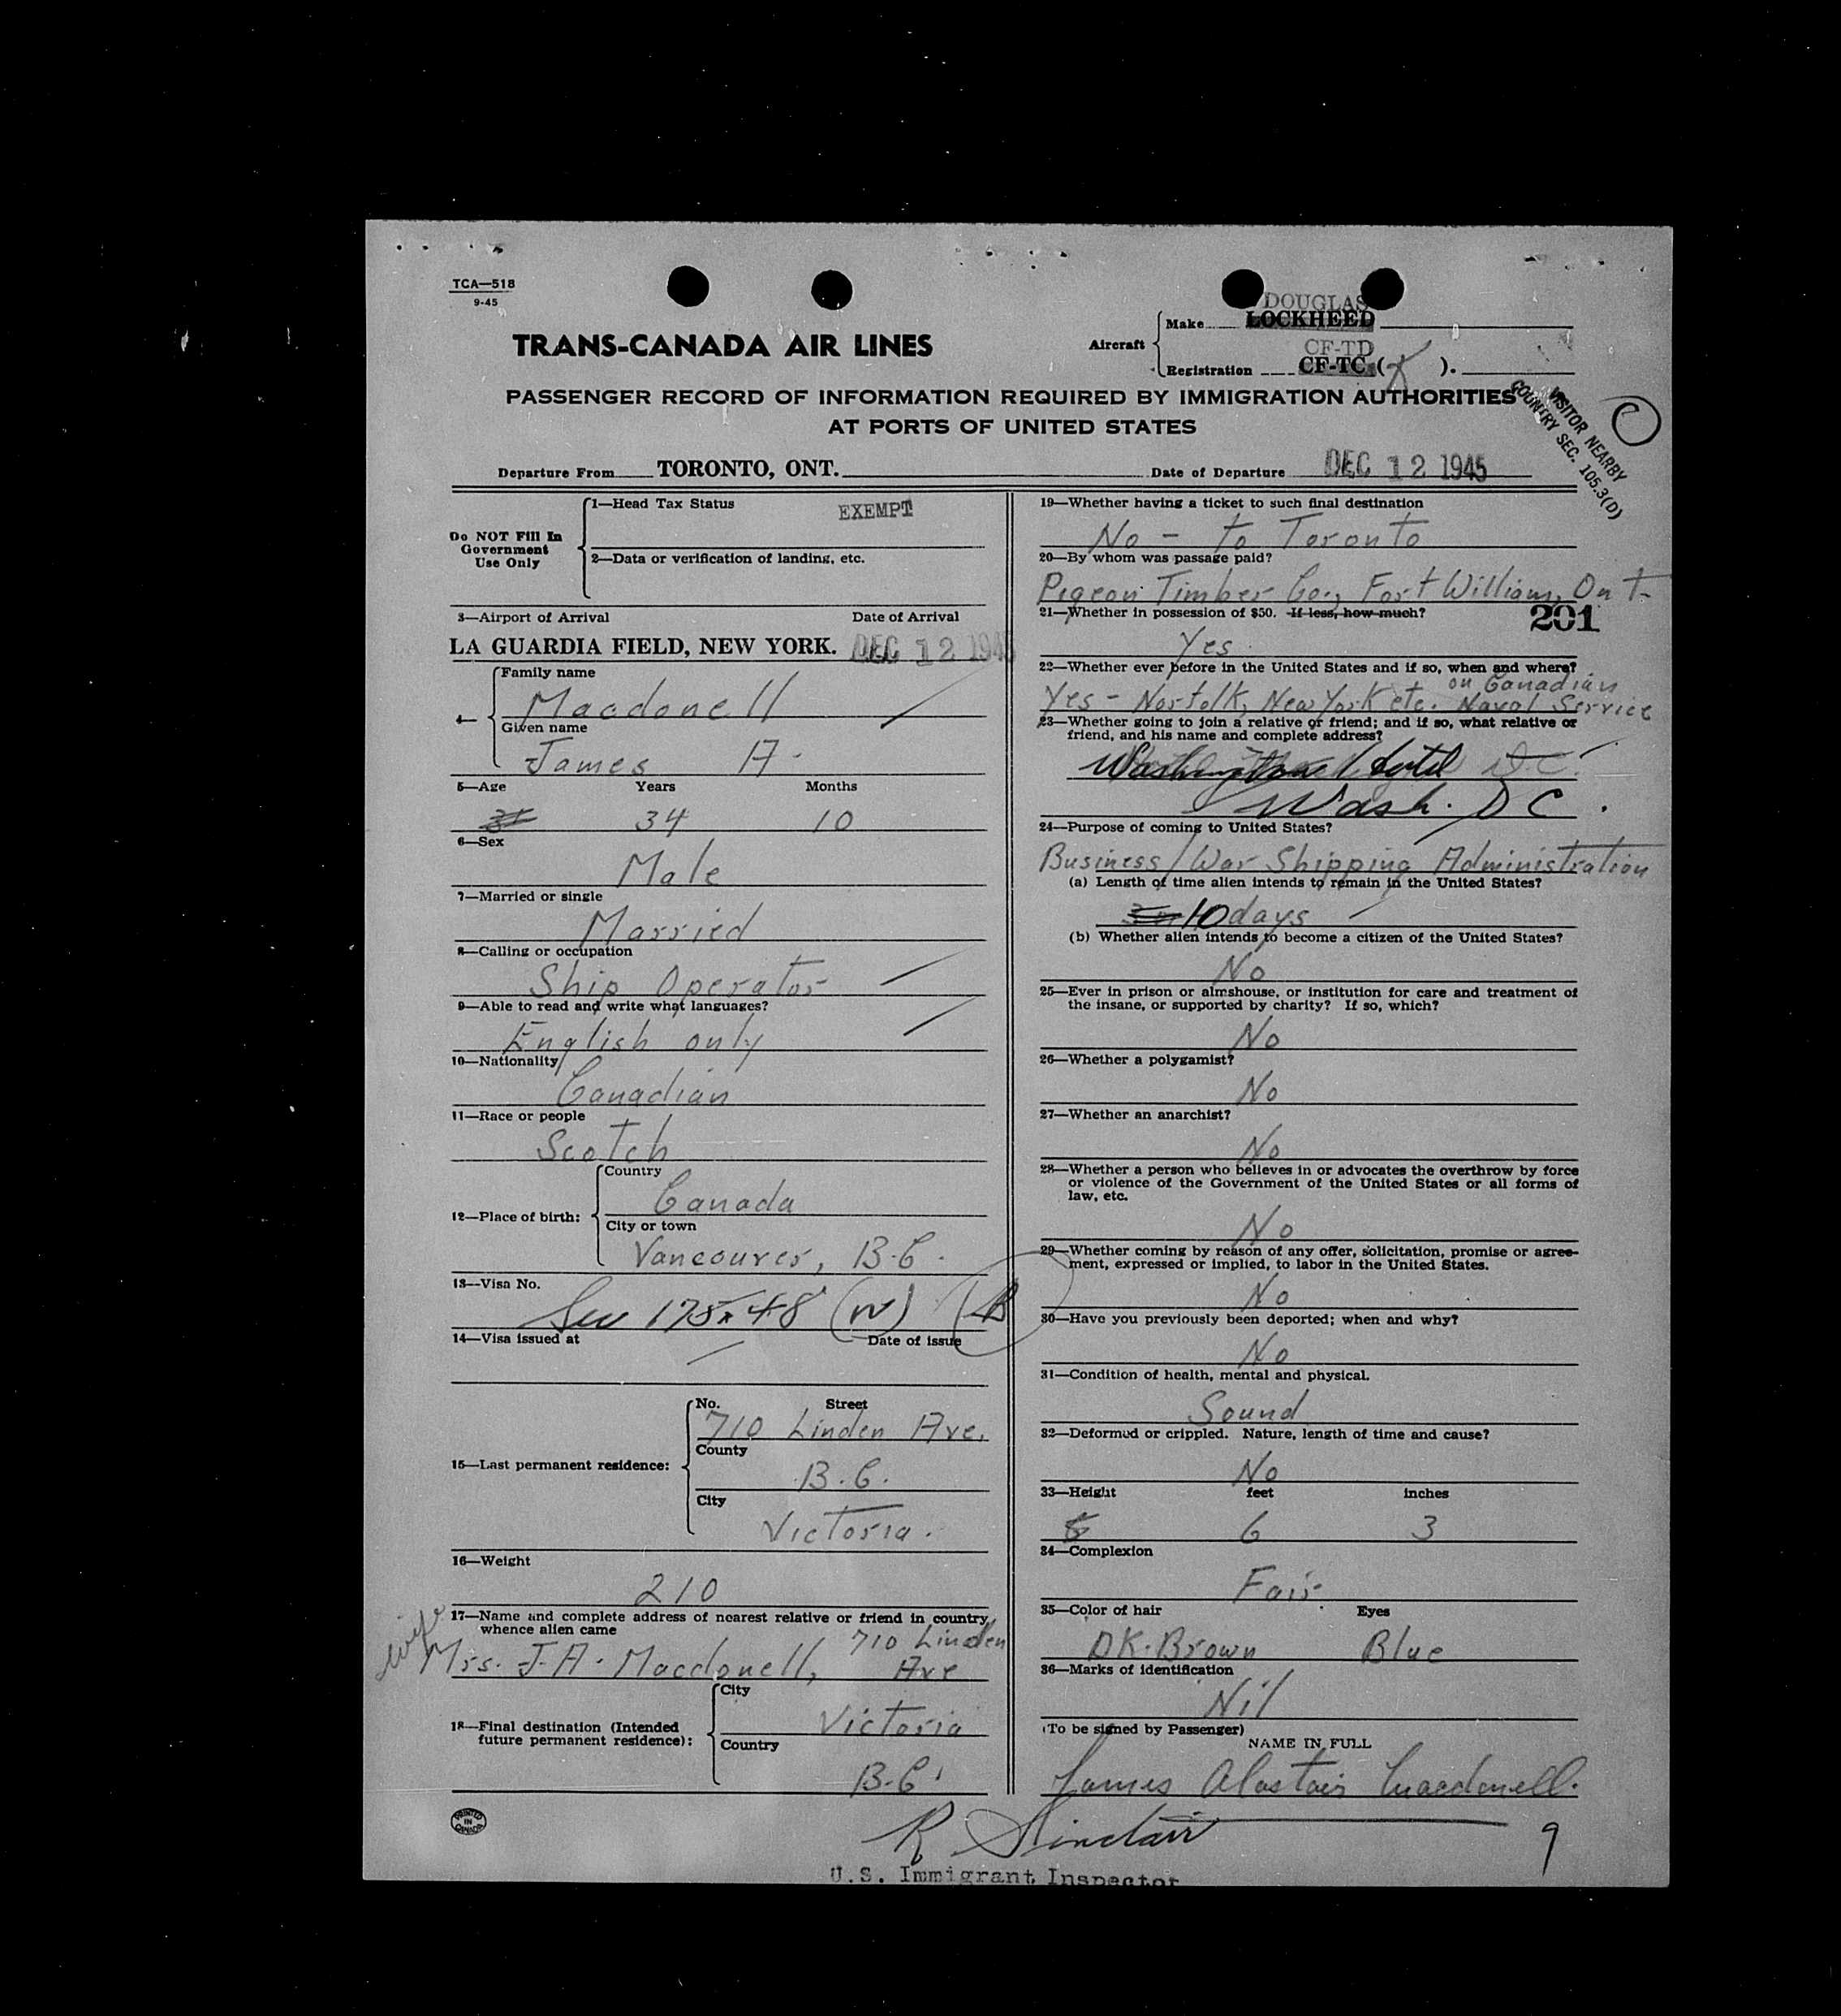 TCA—518
9-45
DOUGLAS
Make LOCKHEED
TRANS-CANADA AIR LINES
Aircraft
CF-TD
Registration CF-TC ( X ).
PASSENGER RECORD OF INFORMATION REQUIRED BY IMMIGRATION AUTHORITIES
AT PORTS OF UNITED STATES
VISITOR NEARBY
COUNTRY SEC. 105.3(D)
Departure From TORONTO, ONT. Date of Departure DEC 12 1945
Do NOT Fill In
Government
Use Only
1—Head Tax Status EXEMPT
2—Data or verification of landing, etc.
3—Airport of Arrival Date of Arrival
LA GUARDIA FIELD, NEW YORK. DEC 12 1945
4—
Family name
Macdonell
Given name
James A.
5—Age Years Months
34 10
6—Sex
Male
7—Married or single
Married
8—Calling or occupation
Ship Operator
9—Able to read and write what languages?
English only
10—Nationality
Canadian
11—Race or people
Scotch
12—Place of birth:
Country
Canada
City or town
Vancouver, B.C.
13—Visa No.
Sec 175.48 (W)
14—Visa issued at Date of issue
15—Last permanent residence:
No. Street
710 Linden Ave.
County
B.C.
City
Victoria.
16—Weight
210
17—Name and complete address of nearest relative or friend in country
whence alien came
wife
Mrs. J.A. Macdonell, 710 Linden
Ave
18—Final destination (Intended
future permanent residence):
City
Victoria
Country
B.C.
PRINTED
IN
CANADA
19—Whether having a ticket to such final destination
No - to Toronto
20—By whom was passage paid?
Pigeon Timber Co., Fort William, Ont-
21—Whether in possession of $50. If less, how much? 201
Yes
22—Whether ever before in the United States and if so, when and where?
on Canadian
Yes - Norfolk, New York etc. Naval Service
23—Whether going to join a relative or friend; and if so, what relative or
friend, and his name and complete address?
Washington Hotel D.C.
Wash. D C.
24—Purpose of coming to United States?
Business / War Shipping Administration
(a) Length of time alien intends to remain in the United States?
10 days
(b) Whether alien intends to become a citizen of the United States?
No
25—Ever in prison or almshouse, or institution for care and treatment of
the insane, or supported by charity? If so, which?
No
26—Whether a polygamist?
No
27—Whether an anarchist?
No
28—Whether a person who believes in or advocates the overthrow by force
or violence of the Government of the United States or all forms of
law, etc.
No
29—Whether coming by reason of any offer, solicitation, promise or agree-
ment, expressed or implied, to labor in the United States.
No
30—Have you previously been deported; when and why?
No
31—Condition of health, mental and physical.
Sound
32—Deformed or crippled. Nature, length of time and cause?
No
33—Height feet inches
6 3
34—Complexion
Fair
35—Color of hair Eyes
DK. Brown Blue
36—Marks of identification
Nil
(To be signed by Passenger)
NAME IN FULL
James Alastair Macdonell.
R Sinclair
9
U.S. Immigrant Inspector